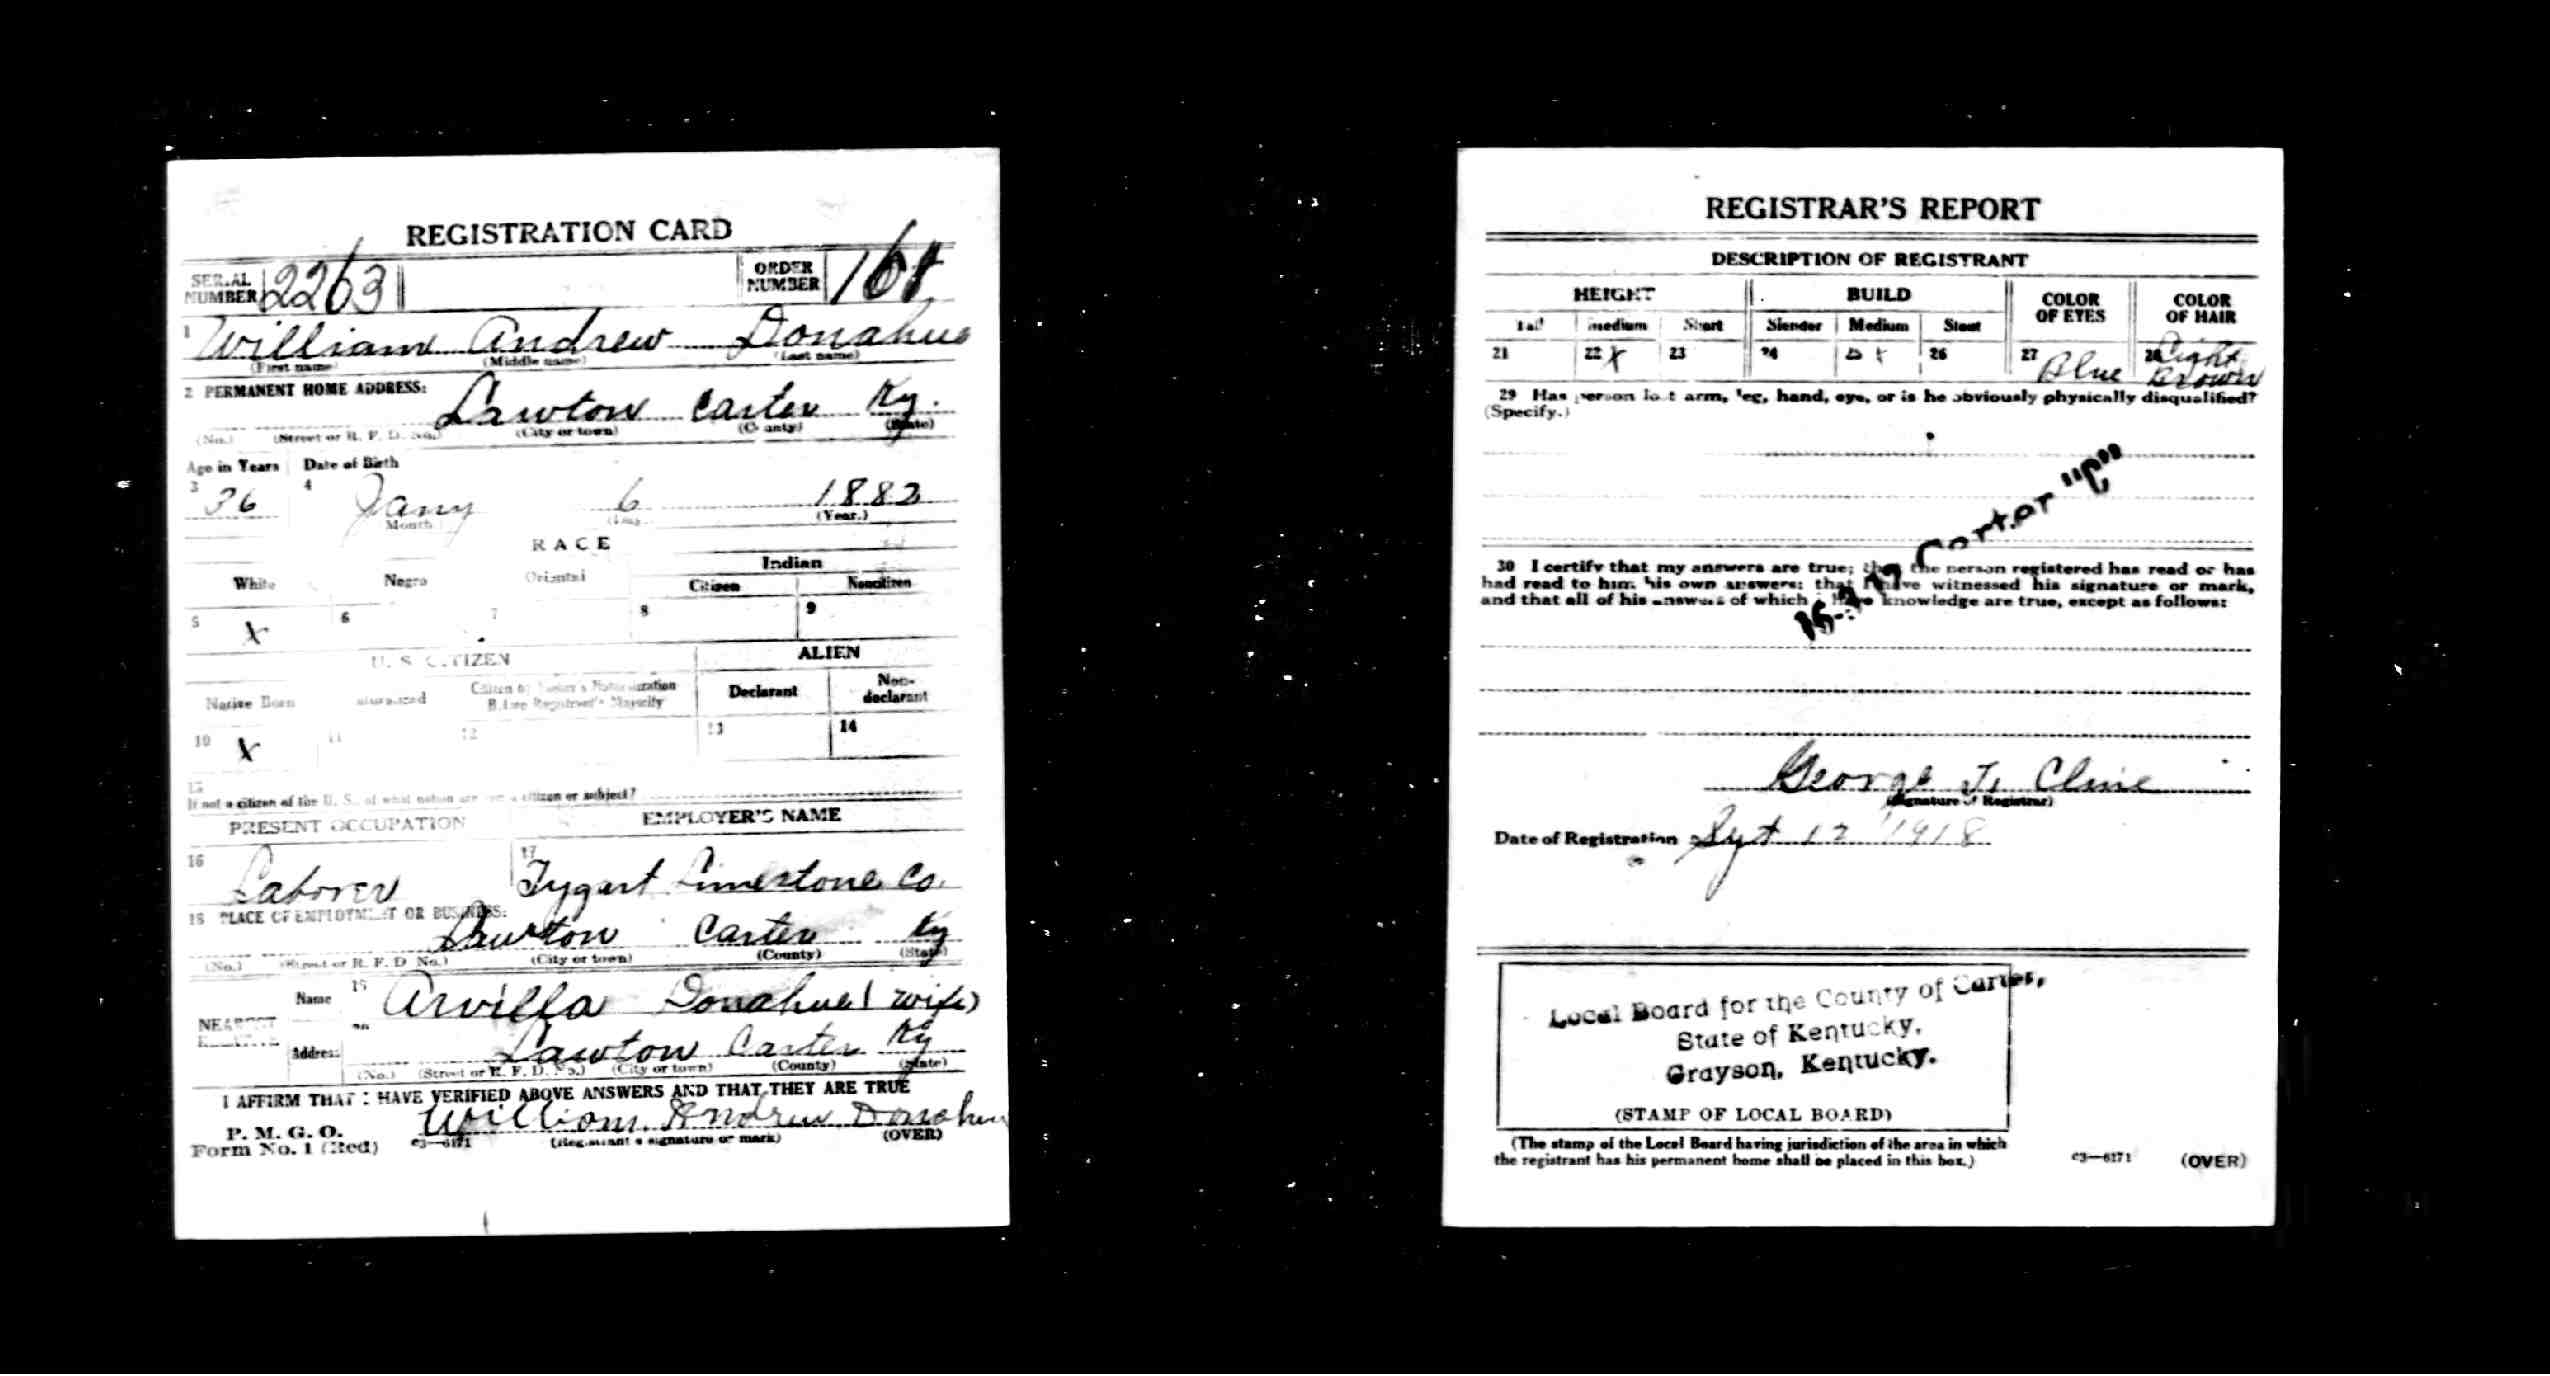 REGISTRATION CARD
SERIAL NUMBER 2263 ORDER NUMBER
1 William Andrew Donahue
(First name) (Middle name) (Last name)
2 PERMANENT HOME ADDRESS:
Lawton Carter Ky.
(No.) (Street or R. F. D. No.) (City or town) (County) (State)
Age in Years Date of Birth
3 36 4 Jany 6 1882
Month (Day) (Year.)
RACE
White Negro Oriental Indian
Citizen Noncitizen
5 X 6 7 8 9
U. S. CITIZEN ALIEN
Native Born Naturalized Citizen by Father's Naturalization Before Registrant's Majority Declarant Non-declarant
10 X 11 12 13 14
15
If not a citizen of the U. S., of what nation are you a citizen or subject?
PRESENT OCCUPATION EMPLOYER'S NAME
16 Laborer 17 Tygart Limestone Co.
18 PLACE OF EMPLOYMENT OR BUSINESS:
Lawton Carter Ky
(No.) (Street or R. F. D. No.) (City or town) (County) (State)
NEAREST RELATIVE
Name 19 Arvilla Donahue (wife)
Address 20 Lawton Carter Ky
(No.) (Street or R. F. D. No.) (City or town) (County) (State)
I AFFIRM THAT I HAVE VERIFIED ABOVE ANSWERS AND THAT THEY ARE TRUE
P. M. G. O.
Form No. 1 (Red) c3—6171 William Andrew Donahue
(Registrant's signature or mark) (OVER)
REGISTRAR'S REPORT
DESCRIPTION OF REGISTRANT
HEIGHT BUILD COLOR OF EYES COLOR OF HAIR
Tall Medium Short Slender Medium Stout
21 22 X 23 24 25 X 26 27 Blue 28 Light Brown
29 Has person lost arm, leg, hand, eye, or is he obviously physically disqualified?
(Specify.)
Carter "C"
30 I certify that my answers are true; that the person registered has read or has
had read to him his own answers; that I have witnessed his signature or mark,
and that all of his answers of which I have knowledge are true, except as follows:
George T. Cline
(Signature of Registrar)
Date of Registration Sept 12 1918
Local Board for the County of Carter,
State of Kentucky,
Grayson, Kentucky.
(STAMP OF LOCAL BOARD)
(The stamp of the Local Board having jurisdiction of the area in which
the registrant has his permanent home shall be placed in this box.)
c3—6171 (OVER)